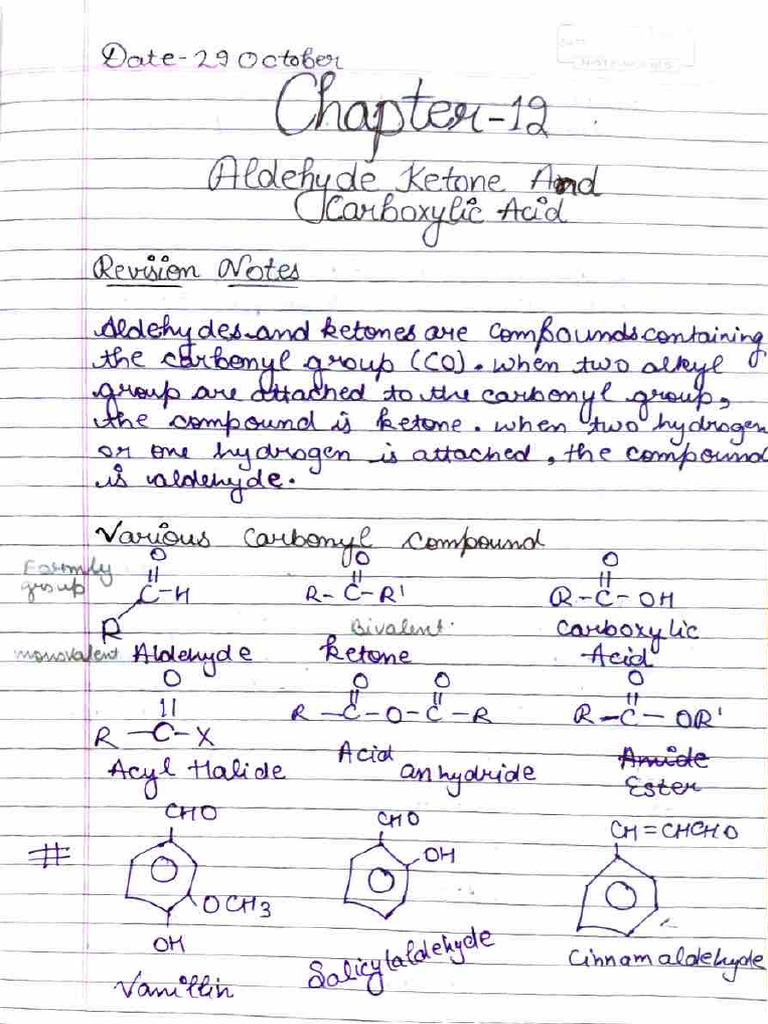 Date-29 October
Chapter-12
Aldehyde Ketone And
Carboxylic Acid
Revision Notes
Aldehydes and ketones are compounds containing
the carbonyl group (CO). When two alkyl
group are attached to the carbonyl group,
the compound is ketone. When two hydrogen
or one hydrogen is attached, the compound
is aldehyde.
Various carbonyl compound
O O O
Formly
group
C-H R-C-R' R-C-OH
R
Bivalent
monovalent Aldehyde ketone Carboxylic
Acid
O O O O
R-C-X R-C-O-C-R R-C-OR'
Acyl Halide Acid anhydride Amide
Ester
CHO CHO CH=CHCHO
# OH
OCH3
OH
Vanillin Salicylaldehyde Cinnamaldehyde